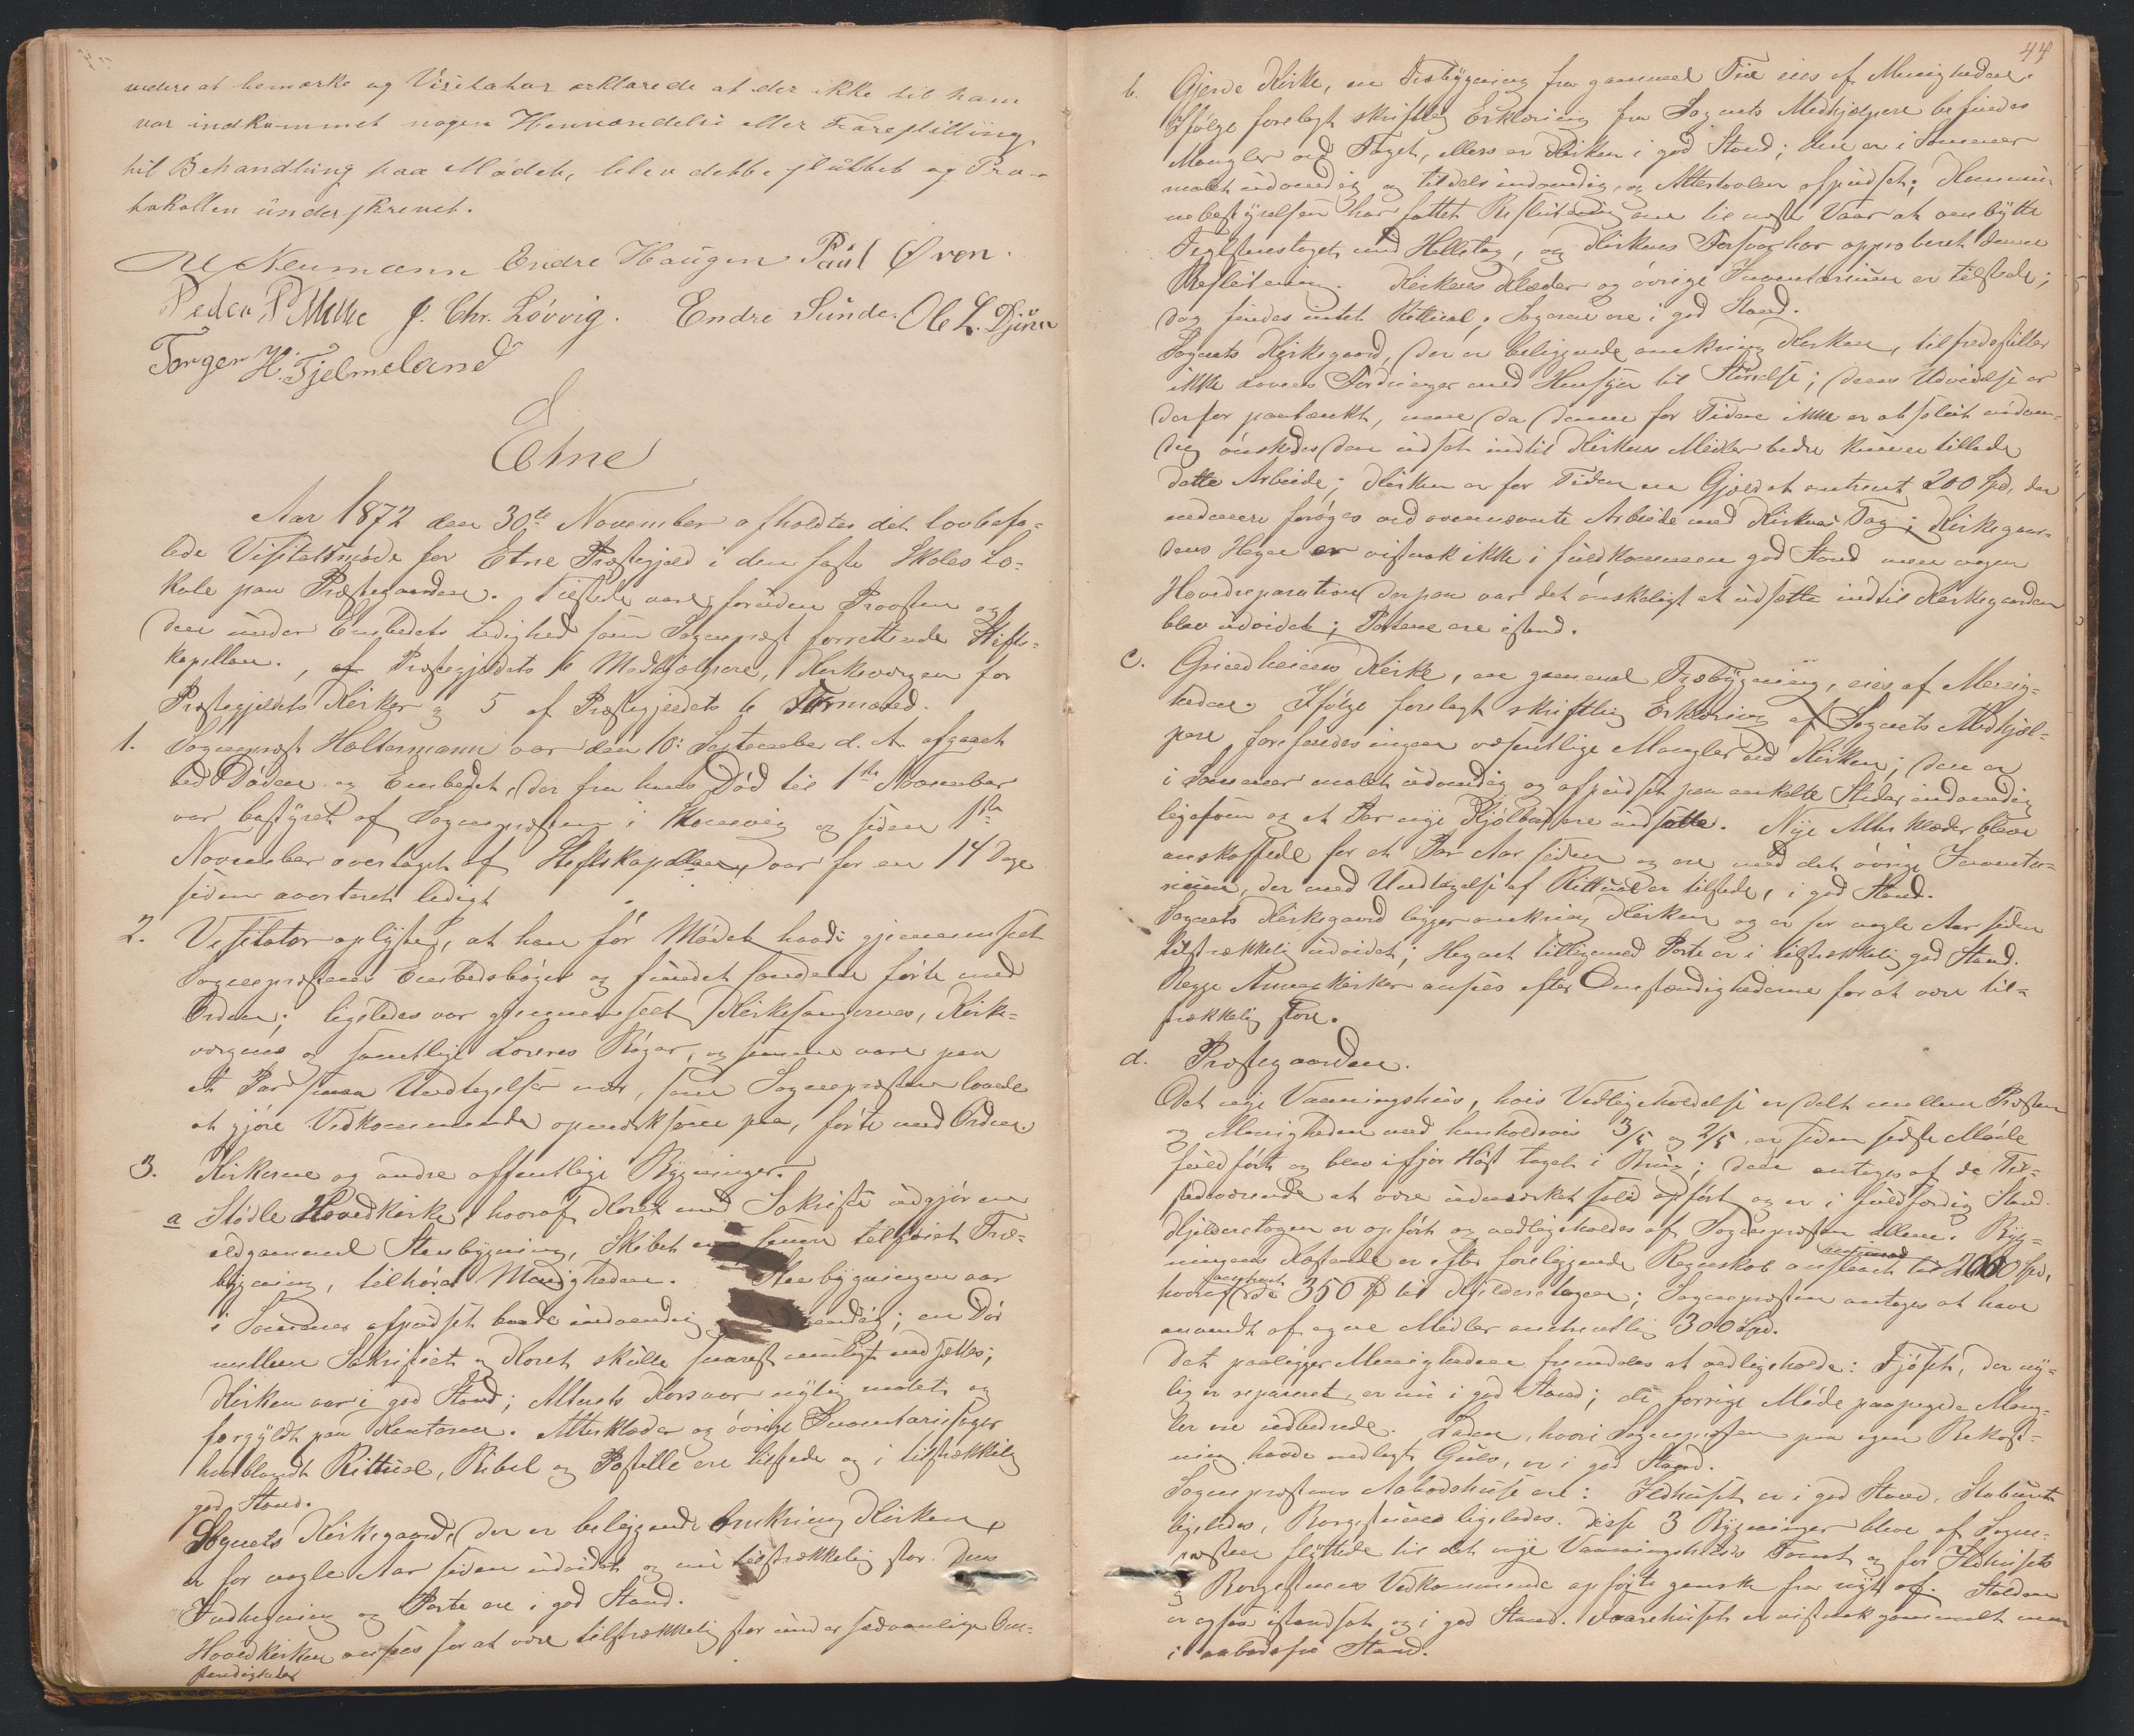 videre at bemærke og Visitator erklærede at der ikke til ham
var indkommet nogen Henvendelse eller Forestilling
til Behandling paa Mødet, blev dette sluttet og Pro-
tokollen underskrevet.
Neumann Endre Haugen Paul Øren.
Peder P J. Chr. Løvvig. Endre Sunde. Ole L.
Torger H. Fjelmeland
Etne
Aar 1872 den 30te November afholdtes det lovbefa-
lede Visitatsmøde for Etne Præstegjeld i den faste Skoles Lo-
kale paa Præstegaarden. Tilstede vare, foruden Provsten og
den under Embedets Ledighed som Sognepræst forrettende Stifts-
kapellan, af Præstegjeldets 6 Medhjælpere, Kirkeværgen for
Præstegjeldets Kirker og 5 af Præstegjeldets 6 Formænd.
1. Sognepræst Haltermann var den 10: September d. A. afgaaet
ved Døden og Embedet, der fra hans Død til 1ste November
var bestyret af Sognepræsten i Skonevig og siden 1ste
November overtaget af Stiftskapellanen, var for en 14 Dage
siden averteret ledigt
2. Visitator oplyste, at han før Mødet havde gjennemseet
Sognepræstens Embedsbøger og fundet samtlige førte med
Orden; ligeledes var gjennemseet Kirkesangernes, Kirke-
værgens og samtlige Læreres Bøger, og samme vare paa
et Par smaa Undtagelser nær, som Sognepræsten lovede
at gjøre Vedkommende opmærksom paa, førte med Orden.
3. Kirkerne og andre offentlige Bygninger.
a Stødle Hovedkirke, hvoraf Koret med Sakristi udgjør en
ældgammel Stenbygning, Skibet en senere tilføiet Træ-
bygning, tilhører Menigheden. Stenbygningen var
i Sommer afpudset baade indvendig; en Dør
mellem Sakristiet og Koret skulde snarest muligt indsættes;
Kirken var i god Stand; Alterets Kors var nylig malet og
forgyldt paa Kanterne. Alterklæder og øvrige Inventariesager
hvoriblandt Rittual, Bibel og Postille ere tilstede og i tilstrækkelig
god Stand.
Sognets Kirkegaard, der er beliggende omkring Kirken,
er for nogle Aar siden udvidet og nu tilstrækkelig stor. Dens
Indhegning og Porte ere i god Stand.
Hovedkirken ansees for at være tilstrækkelig stor under sædvanlige Om-
stændigheder
44
b. Gjerde Kirke, en Træbygning fra gammel Tid eies af Menigheden.
Ifølge forelagt skriftlig Erklæring fra Sognets Medhjælpere befindes
Mangler ved Taget, ellers er Kirken i god Stand; den er i Sommer
malet udvendig og tildels indvendig, og Altertavlen afpudset; Kommu-
nebestyrelsen har fattet Beslutning om til næste Vaar at ombytte
Teglstenstaget med Helletag, og Kirkens Forsvar har approberet denne
Beslutning. Kirkens Klæder og øvrige Inventarium er tilstede;
dog findes intet Rittual. Sagerne ere i god Stand.
Sognets Kirkegaard, der er beliggende omkring Kirken, tilfredsstiller
ikke Lovens Fordringer med Hensyn til Størrelse; dens Udvidelse er
derfor paatænkt, men da denne for Tiden ikke er absolut nødven-
dig ønskedes den udsat indtil Kirkens Midler bedre kunne tillade
dette Arbeide; Kirken er for Tiden en Gjæld af omtrent 200 Spd, der
ydermere forøges ved ovennævnte Arbeide med Kirkens Tag; Kirkegaar-
dens Hegn er vistnok ikke i fuldkommen god Stand men nogen
Hovedreparation derpaa var det ønskeligt at udsætte indtil Kirkegaarden
blev udvidet; Portene ere istand.
c. Grindheims Kirke, en gammel Træbygning, eies af Menig-
heden. Ifølge forelagt skriftlig Erklæring af Sognets Medhjæl-
pere forefindes ingen væsentlige Mangler ved Kirken; den er
i Sommer malet udvendig og afpudset paa enkelte Steder indvendig
ligesom og et Par nye indsatte. Nye Alterklæder bleve
anskaffede for et Par Aar siden og ere med det øvrige Inventa-
rium, der med Undtagelse af Rittual er tilstede, i god Stand.
Sognets Kirkegaard ligger omkring Kirken og er for nogle Aar siden
tilstrækkelig udvidet; Hegnet tilligemed Porte er i tilstrækkelig god Stand.
Begge Annexkirker ansees efter Omstændighederne for at være til-
strækkelig store.
d. Præstegaarden.
Det nye Vaaningshuus, hvis Vedligeholdelse er delt mellem Præsten
og Menigheden med henholdsvis 3/5 og 2/5, er siden sidste Møde
fuldført og blev ifjor Høst taget i Brug; det antages af de Til-
stedeværende at være udmærket solid opført og er i fuldfærdig Stand.
Kjelderetagen er opført og vedligeholdes af Sognepræsten alene. Byg-
ningens Kostende er efter foreliggende Regnskab anslaaet til 2000 Spd,
hvoraf omtrent 350 Spd til Kjelderetagen; Sognepræsten antages at have
anvendt af egne Midler omtrentlig 300 Spd.
Det paaligger Menigheden fremdeles at vedligeholde: Fjøset, der ny-
lig er repareret, er nu i god Stand; de forrige Møde paapegede Mang-
ler ere udbedrede. Laden, hvori Sognepræsten paa egen Bekost-
ning havde nedlagt Gulv, er i god Stand.
Sognepræstens Aabodshuse ere: Ildhuset er i god Stand, Staburet
ligeledes, Borgestuen ligeledes. Disse 3 Bygninger bleve af Sogne-
præsten flyttede til det nye Vaaningshuses Tomt og for Ildhusets
og Borgestuens Vedkommende opførte ganske fra nyt af. Stalden
er ogsaa istandsat og i god Stand. er vistnok gammelt men
i aabodsfri Stand.